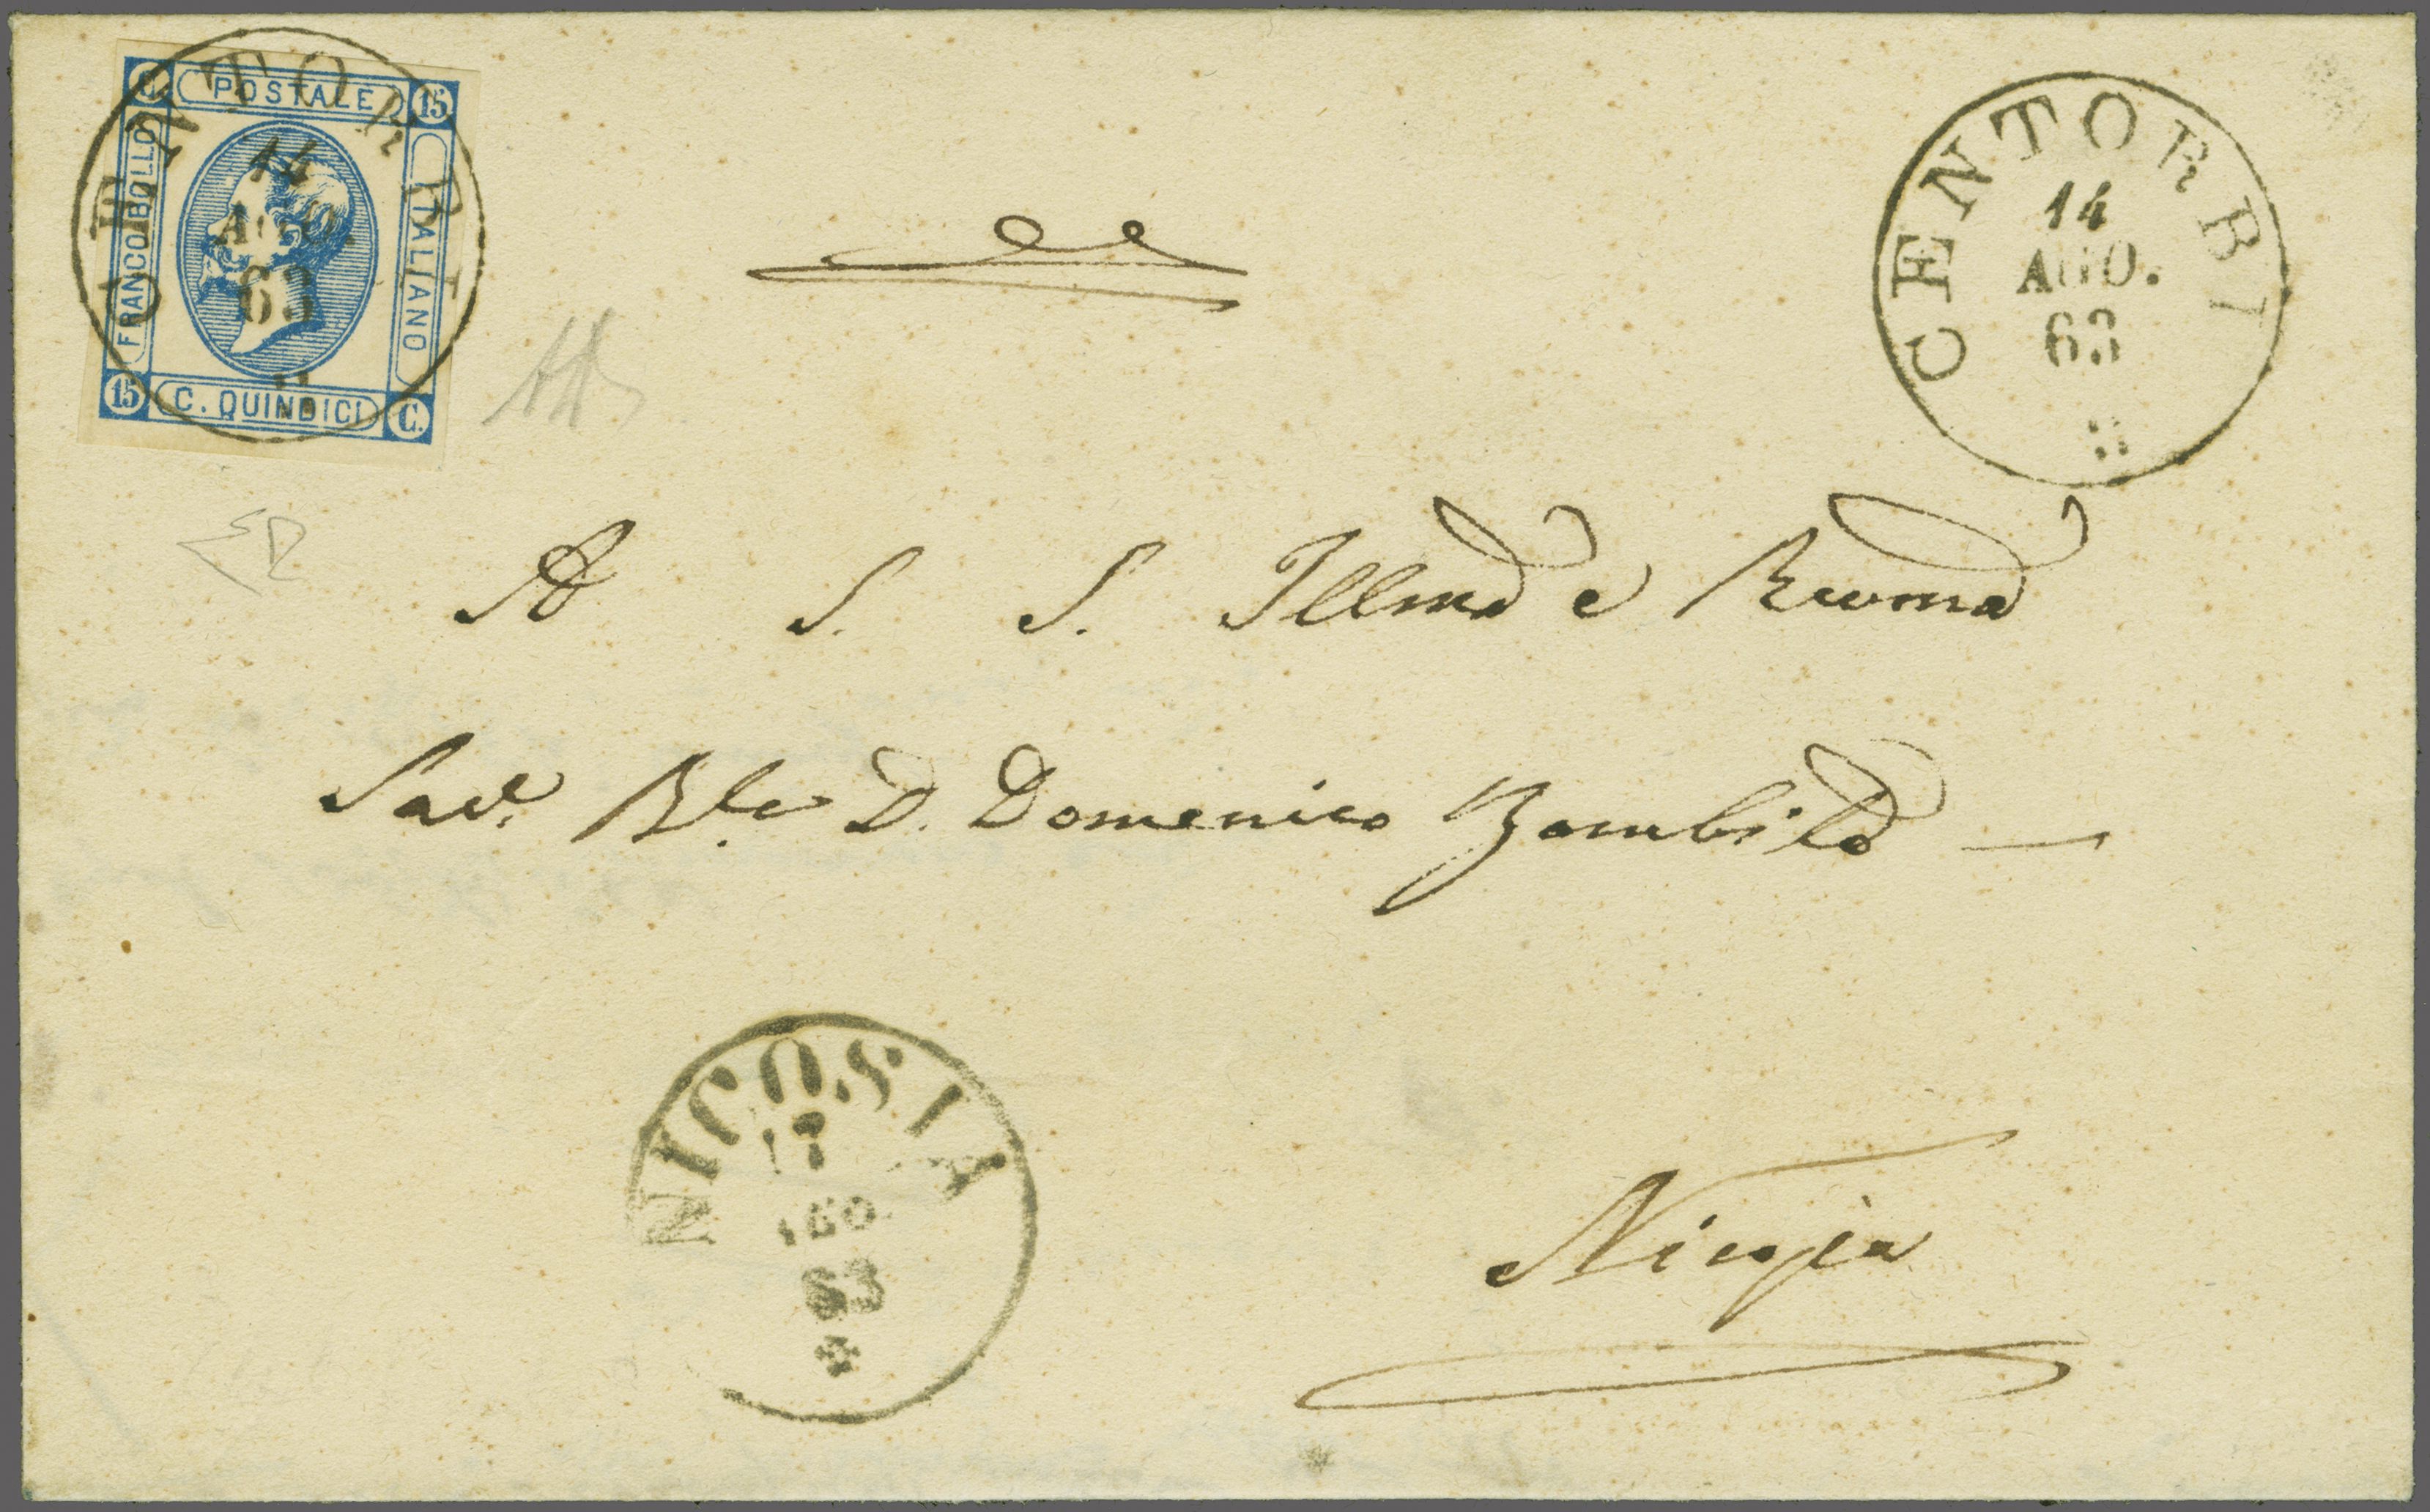 C. POSTALE 15
FRANCO BOLLO
ITALIANO
15 C. QUINDICI C.
CENTORBI
14
AGO.
63
CENTORBI
14
AGO.
63
A S. S. Illma e Revma
D. Domenico Zombito
NICOSIA
17
AGO
63
Nicosia